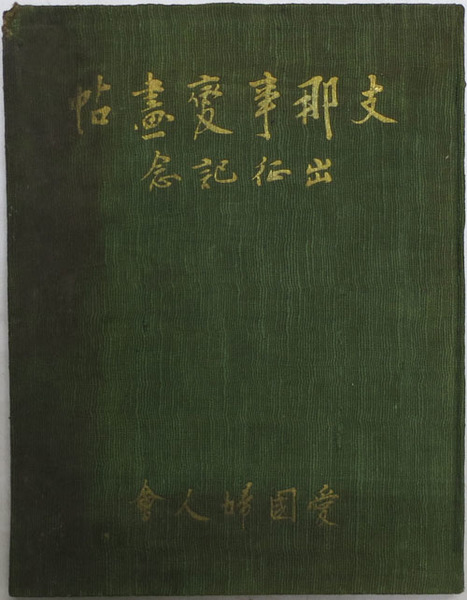 支那事變畫帖
出征記念
愛國婦人會